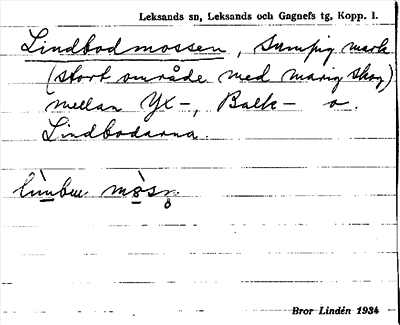 Leksands sn, Leksands och Gagnefs tg, Kopp. l.
Lindbodmossen, Sumpig mark
(stort område med marig skog)
mellan Yx-, Balk- o.
Lindbodarna.
mòsn̥
Bror Lindén 1934